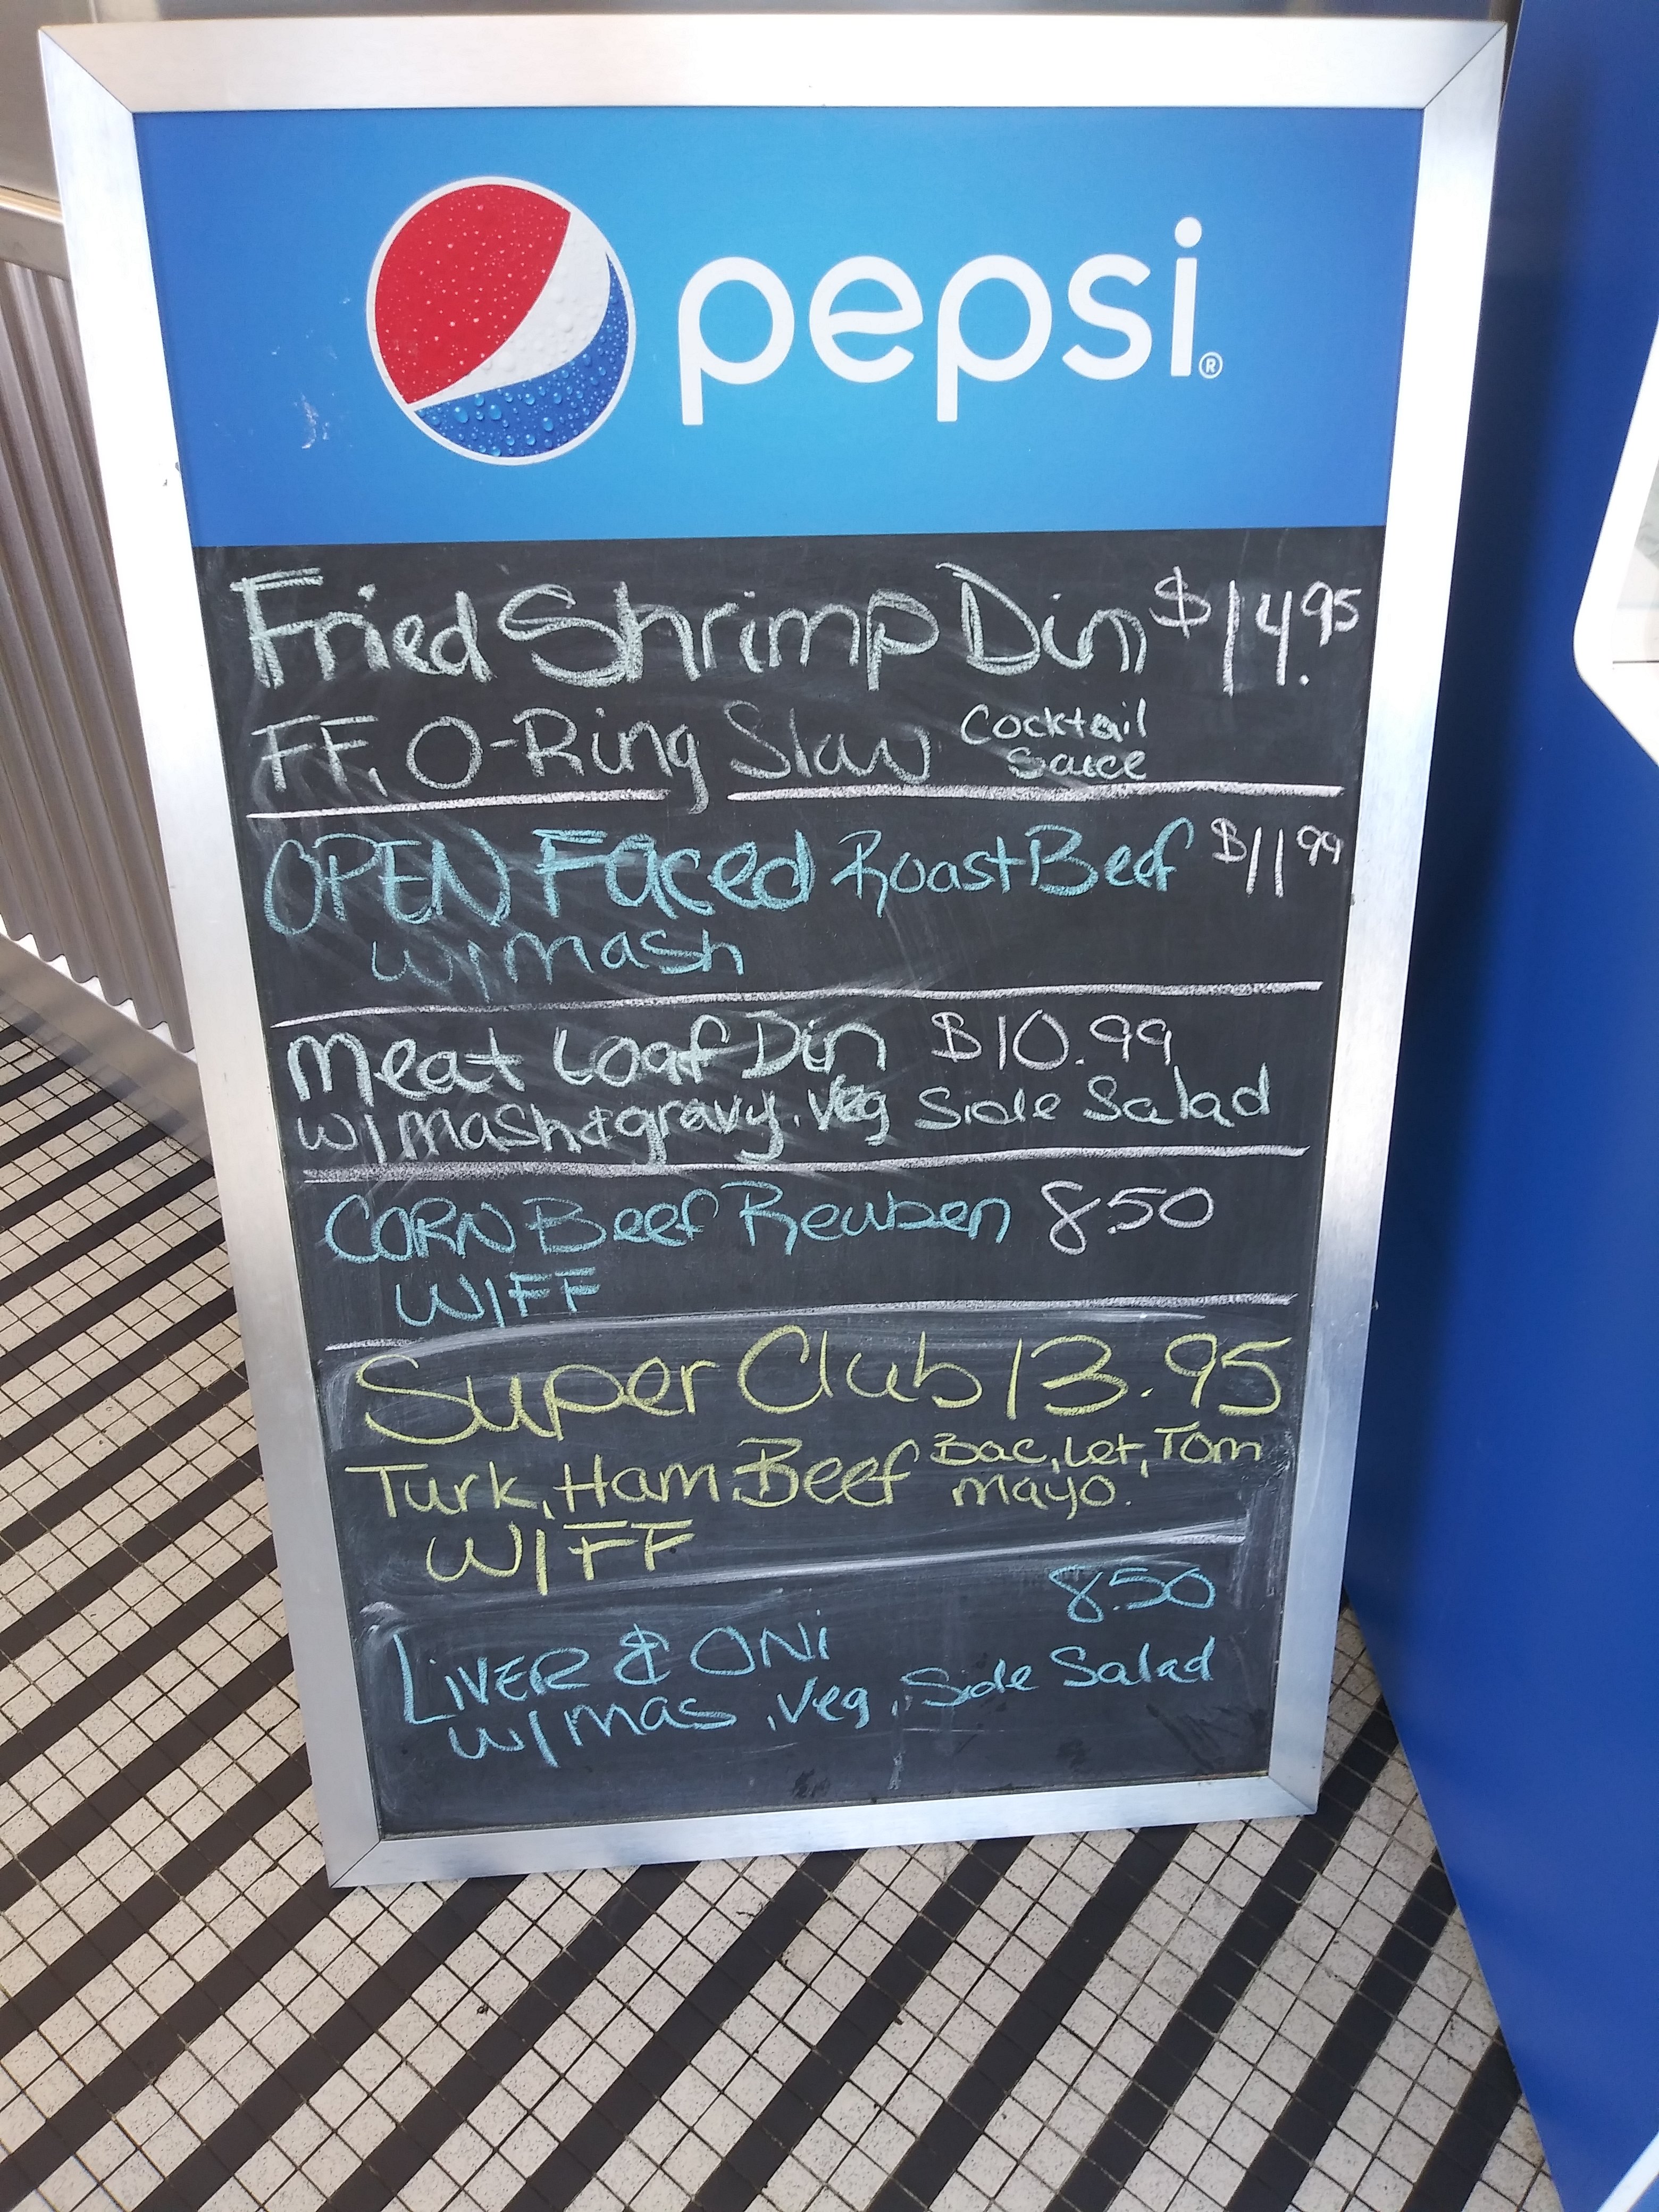 pepsi®
Fried Shrimp Din $14.95
FF, O-Ring Slaw Cocktail
Sauce
OPEN Faced Roast Beef $11 99
w/mash
Meat Loaf Din $10.99
w/mash & gravy, Veg Side Salad
CORN Beef Reuben 8.50
W/FF
Super Club 13.95
Turk, Ham, Beef Bac, Let, Tom
mayo.
W/FF
8.50
LiVER & ONi
w/mas , Veg, Side Salad